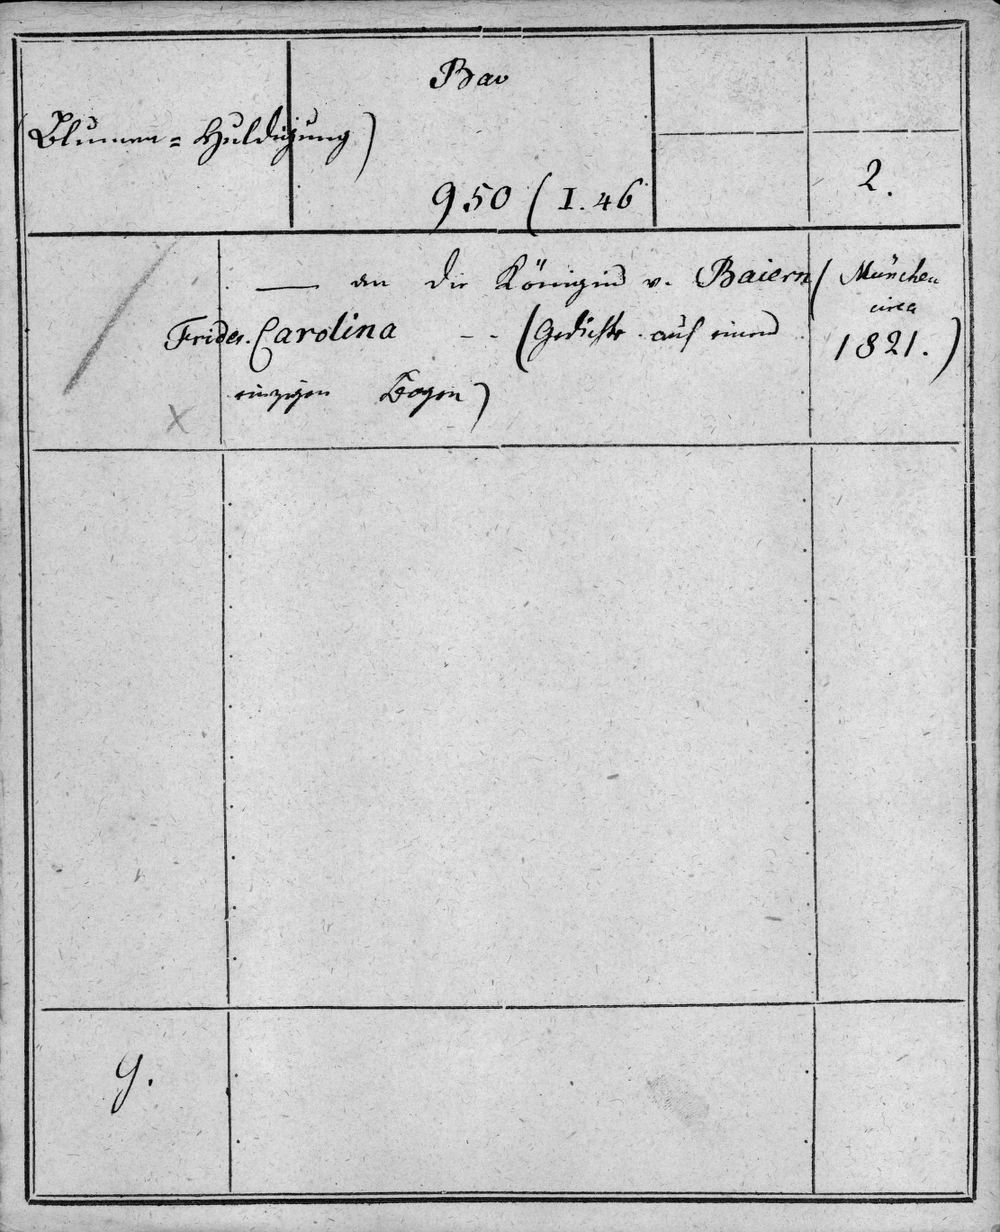 Bav
(Blumen=Huldigung)
950 (I.46
2.
— an die Königin v. Baiern
Frider. Carolina – – (Gedichte auf einem
einzigen Bogen)
(München
circa
1821.)
x
g.